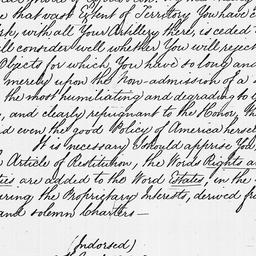 that vast Extent of Territory You have
with all Your Artillery there, is ceded
consider well whether You will reject
Objects for which You have so long and
merely upon the Non-admission of a
the most humiliating and degrading to
and clearly repugnant to the Honor, th
d even the good Policy of America hersel
It is necessary I should apprise You,
Article of Restitution, the Words Rights a
ties are added to the Word Estates, in the
uring the Proprietary Interests, derived f
and solemn Charters—
(Indorsed)